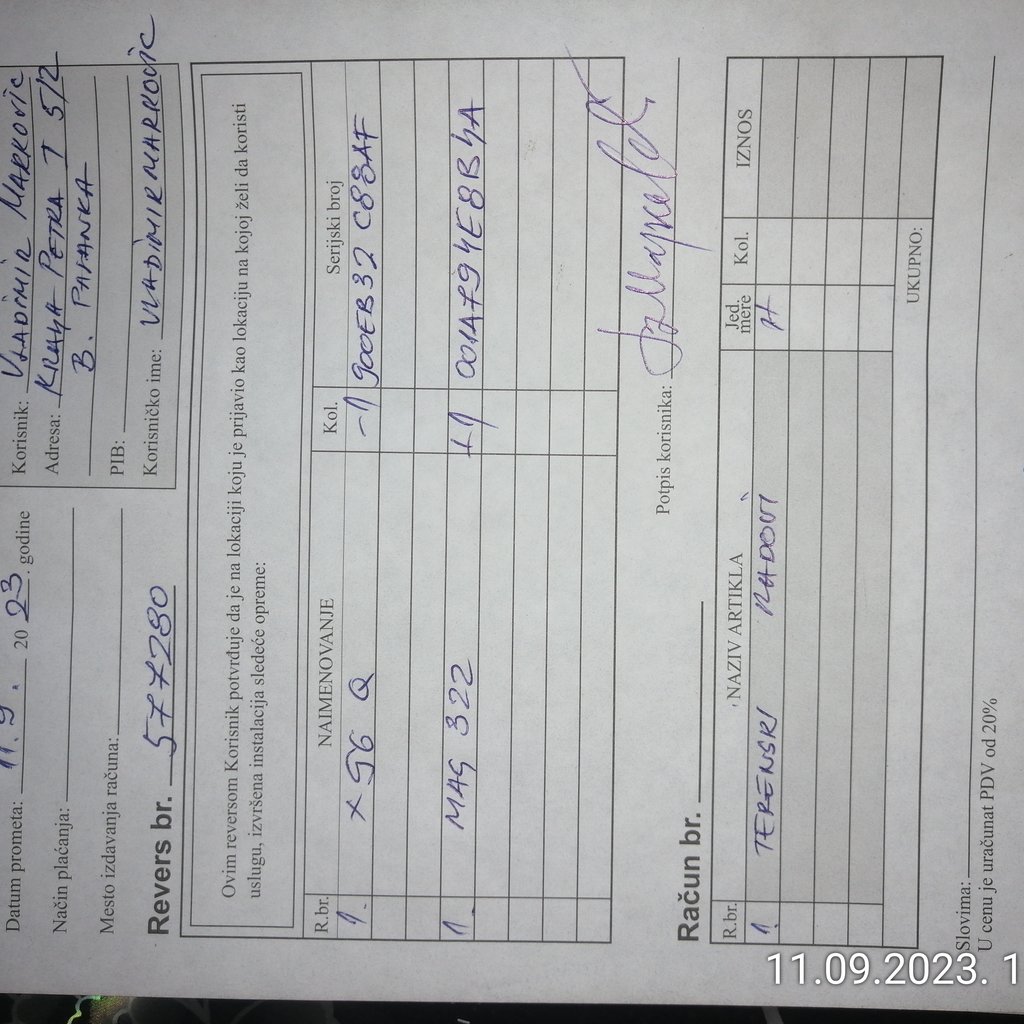 Datum prometa: 11. 9. 20 23. godine
Način plaćanja:
Mesto izdavanja računa:
Korisnik: VLADIMIR MARKOVIC
Adresa: KRALJA PETRA I 5/2
B. PALANKA
PIB:
Korisničko ime: VLADIMIRMARKOVIC
Revers br. 577280
Ovim reversom Korisnik potvrđuje da je na lokaciji koju je prijavio kao lokaciju na kojoj želi da koristi
uslugu, izvršena instalacija sledeće opreme:
R.br. NAIMENOVANJE Kol. Serijski broj
1. X 5G Q -1 900EB32C88AF
1. MAG 322 +1 001A794E8B4A
Potpis korisnika:
Račun br.
R.br. NAZIV ARTIKLA Jed. mere Kol. IZNOS
1 TERENSKI RADOVI
UKUPNO:
Slovima:
U cenu je uračunat PDV od 20%
11.09.2023. 1